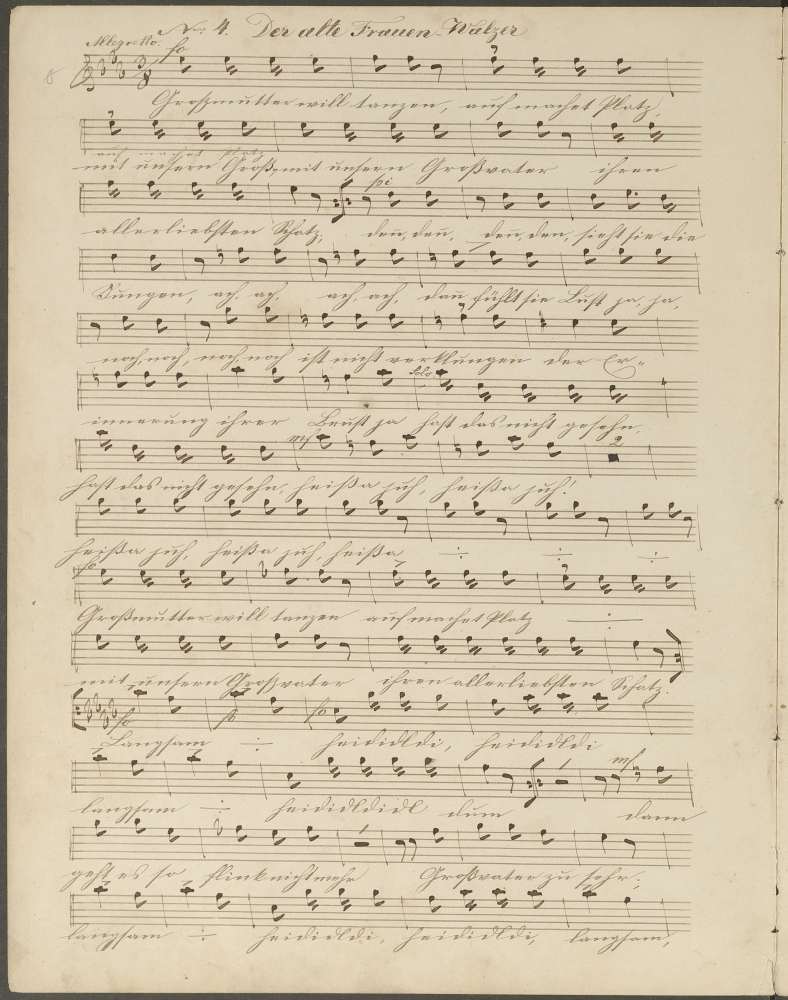 No: 4. Der alte Frauen-Walzer
Allegretto. fo
8
Großmutter will tanzen, auf machet Platz,
auf machet Platz
mit unsern Groß, mit unsern Großvater ihren
pi
allerliebsten Schatz, denn, denn, denn, den, sieht sie die
Jungen, ach, ach, ach, ach, dann fühlt sie Lust ja, ja,
noch, noch, noch, noch ist nicht verklungen der Er-
Solo
innerung ihrer Brust ja hast das nicht gesehn,
mf 2
hast das nicht gesehn, heißa juh, heißa juh!
heißa juh, heißa juh, heißa
fo
Großmutter will tanzen auf machet Platz
mit unsern Großvater ihren allerliebsten Schatz.
fo fo fo
Langsam heididldi, heididldi
mf
langsam heididldidl dum dann
geht es so flink nicht mehr Großvater zu sehr;
langsam heididldi, heididldi, langsam,